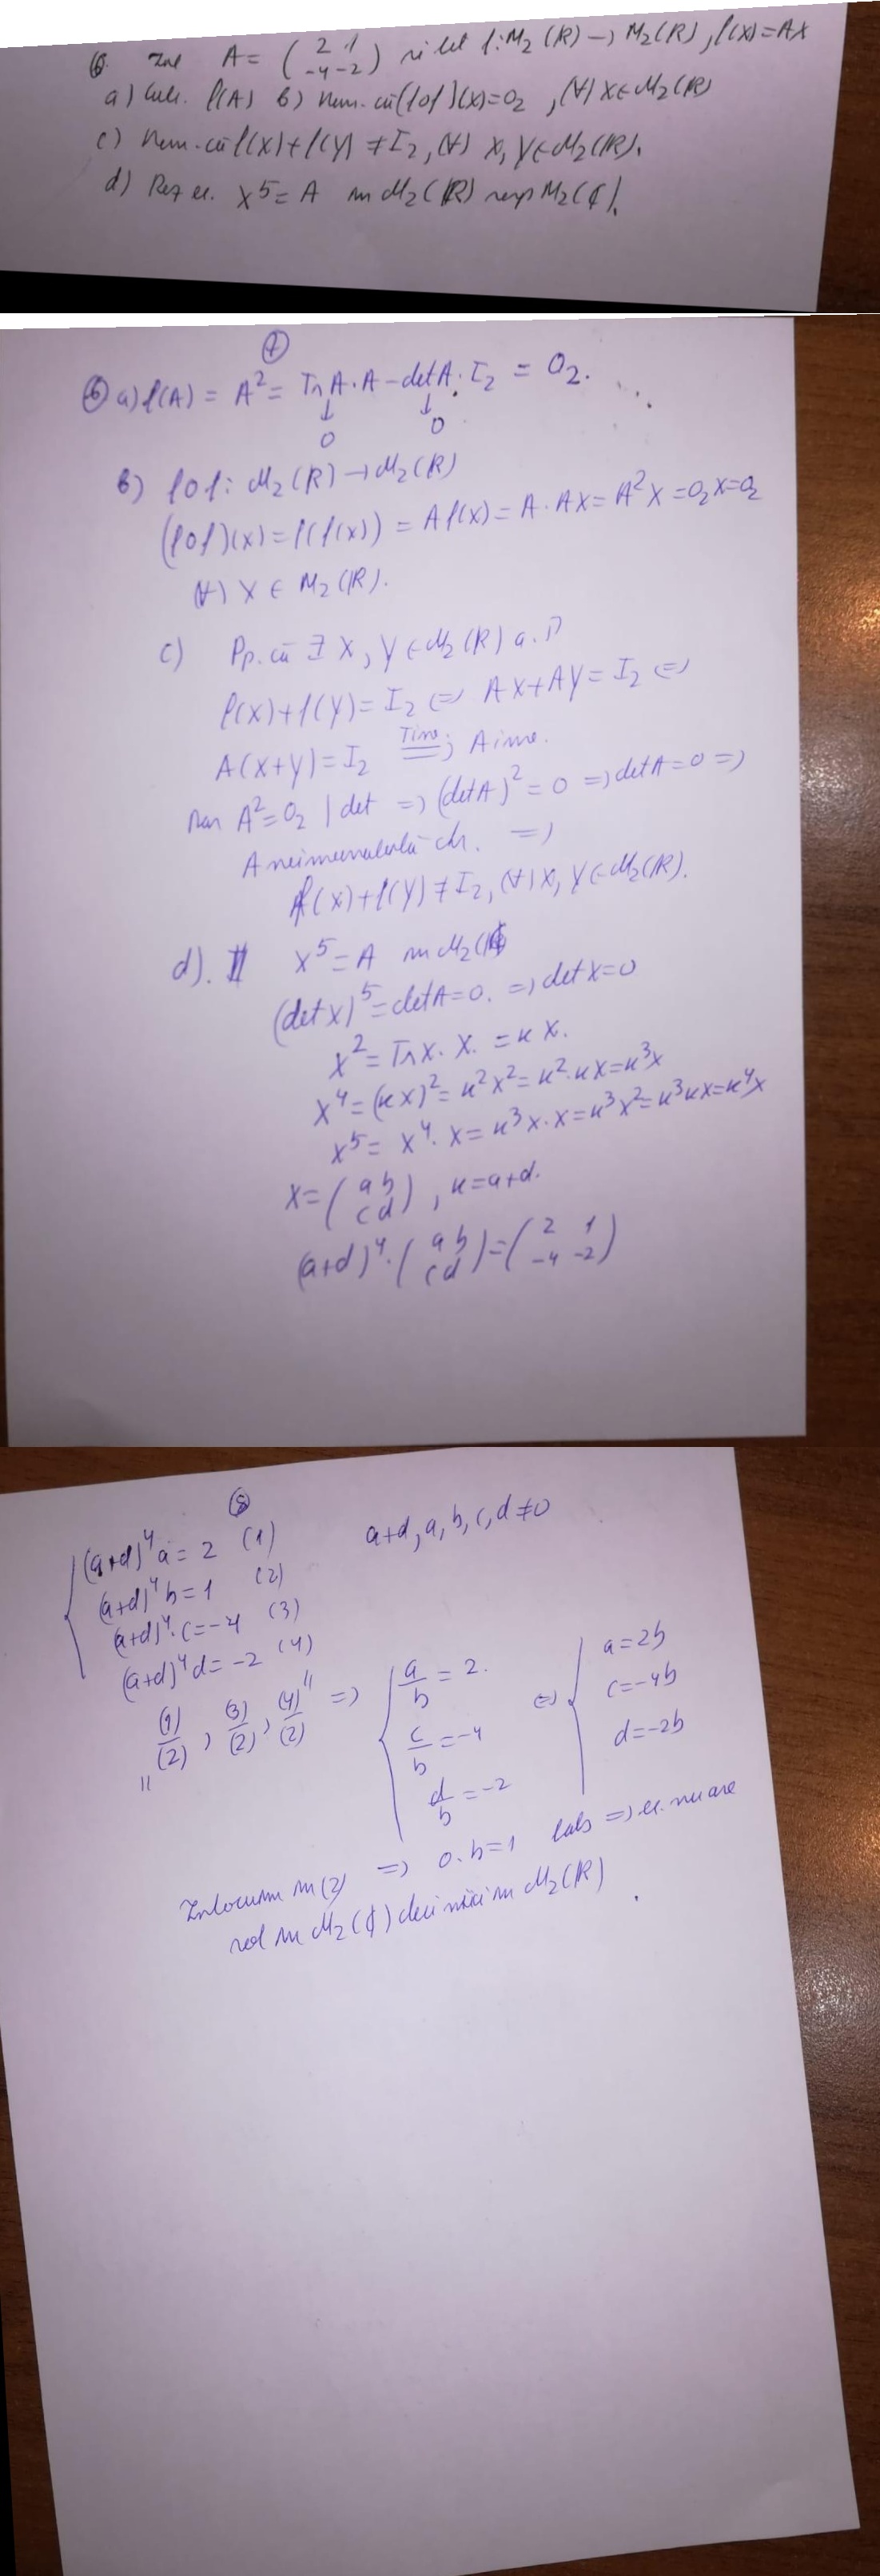 6. Fie A = ( 2 1 -4 -2 ) și let f: M₂(R) → M₂(R), f(x) = AX
a) Calc. f(A) b) Dem. că (f∘f)(x) = O₂, (∀) X ∈ M₂(R)
c) Dem. că f(x) + f(y) ≠ I₂, (∀) X, Y ∈ M₂(R).
d) Rez ec. X⁵ = A în M₂(R) resp M₂(C).
7
6 a) f(A) = A² = Tr A · A - det A · I₂ = O₂.
↓ ↓
0 0
b) f∘f: M₂(R) → M₂(R)
(f∘f)(x) = f(f(x)) = A f(x) = A · AX = A² X = O₂ X = O₂
(∀) X ∈ M₂(R).
c) Pp. că ∃ X, Y ∈ M₂(R) a. î
f(x) + f(y) = I₂ ⇔ AX + AY = I₂ ⇔
A(X+Y) = I₂ ⇒ A inv.
Dar A² = O₂ | det ⇒ (det A)² = 0 ⇒ det A = 0 ⇒
A neinversabilă ⇒
f(x) + f(y) ≠ I₂, (∀) X, Y ∈ M₂(R).
d). X⁵ = A în M₂(C)
(det X)⁵ = det A = 0. ⇒ det X = 0
X² = Tr X · X. = u X.
X⁴ = (uX)² = u² X² = u² · uX = u³ X
X⁵ = X⁴ · X = u³ X · X = u³ X² = u³ uX = u⁴ X
X = ( a b c d ), u = a+d.
(a+d)⁴ · ( a b c d ) = ( 2 1 -4 -2 )
8
(a+d)⁴ a = 2 (1) a+d, a, b, c, d ≠ 0
(a+d)⁴ b = 1 (2)
(a+d)⁴ · c = -4 (3)
(a+d)⁴ d = -2 (4)
" (1)/(2), (3)/(2), (4)/(2) " ⇒ { a/b = 2. c/b = -4 d/b = -2 ⇔ { a = 2b c = -4b d = -2b
Înlocuim în (2) ⇒ 0 · b = 1 fals ⇒ ec. nu are
sol în M₂(C) deci nici în M₂(R)